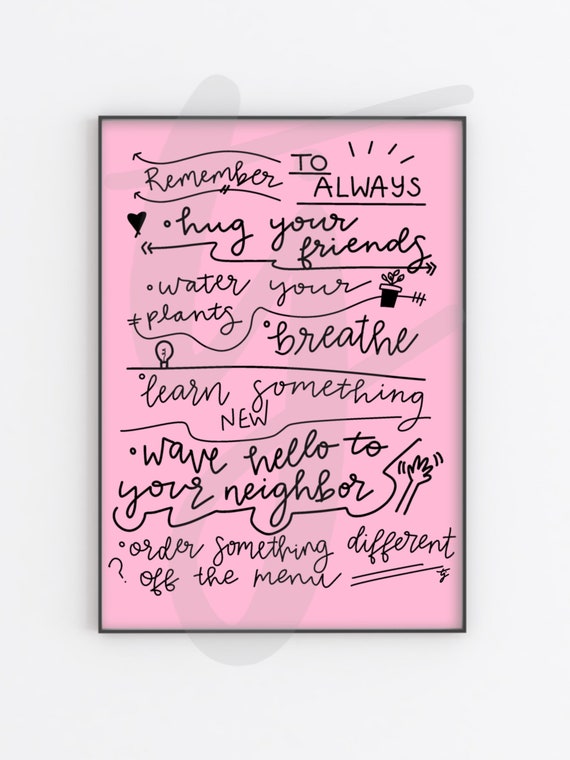 Remember TO
ALWAYS
• hug your
friends
• water your
plants
• breathe
• learn something
NEW
• wave hello to
your neighbor
• order something different
? off the menu